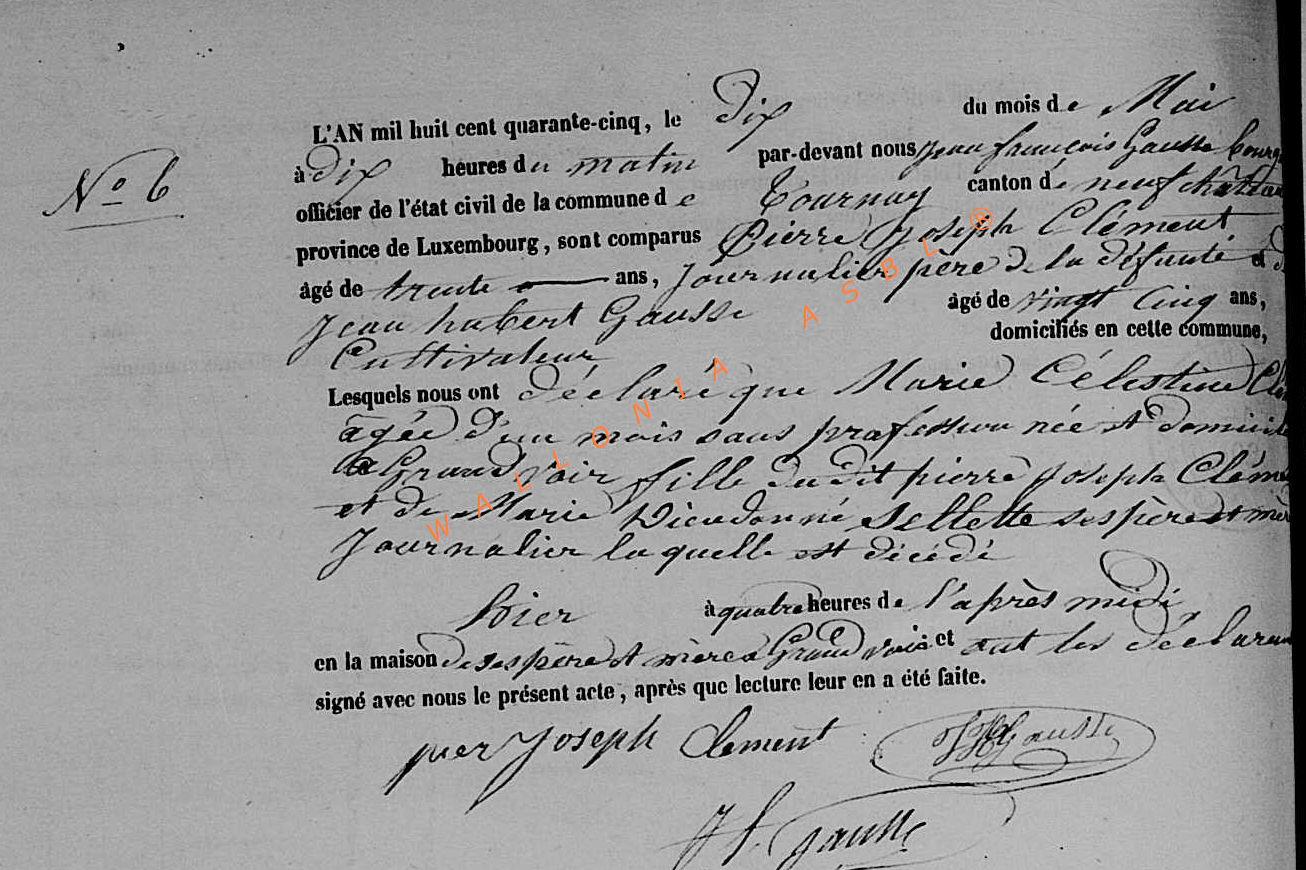 L'AN mil huit cent quarante-cinq, le Dix du mois de Mai
N° 6
à dix heures du matin par-devant nous jean francois Gausse bourg
officier de l'état civil de la commune de Tournay canton de neufchateau
province de Luxembourg, sont comparus Pierre Joseph Clément
âgé de trente ans, Journalier père de la défunte et d
Jean hubert Gausse âgé de vingt Cinq ans,
Cultivateur domiciliés en cette commune,
Lesquels nous ont déclaré que Marie Célestine Clé
agée d'un mois sans profession née et domicil
a Grand voir fille dudit pierre Joseph Cléme
et de Marie Dieudonné Sellette ses père et mer
Journalier la quelle est décédé
hier à quatre heures de l'après midi
en la maison de ses père et mère à Grand voir et ont les déclaran
signé avec nous le présent acte, après que lecture leur en a été faite.
pier Joseph Clement JH Gausse
Jf. Gausse
WALLONIA ASBL ®